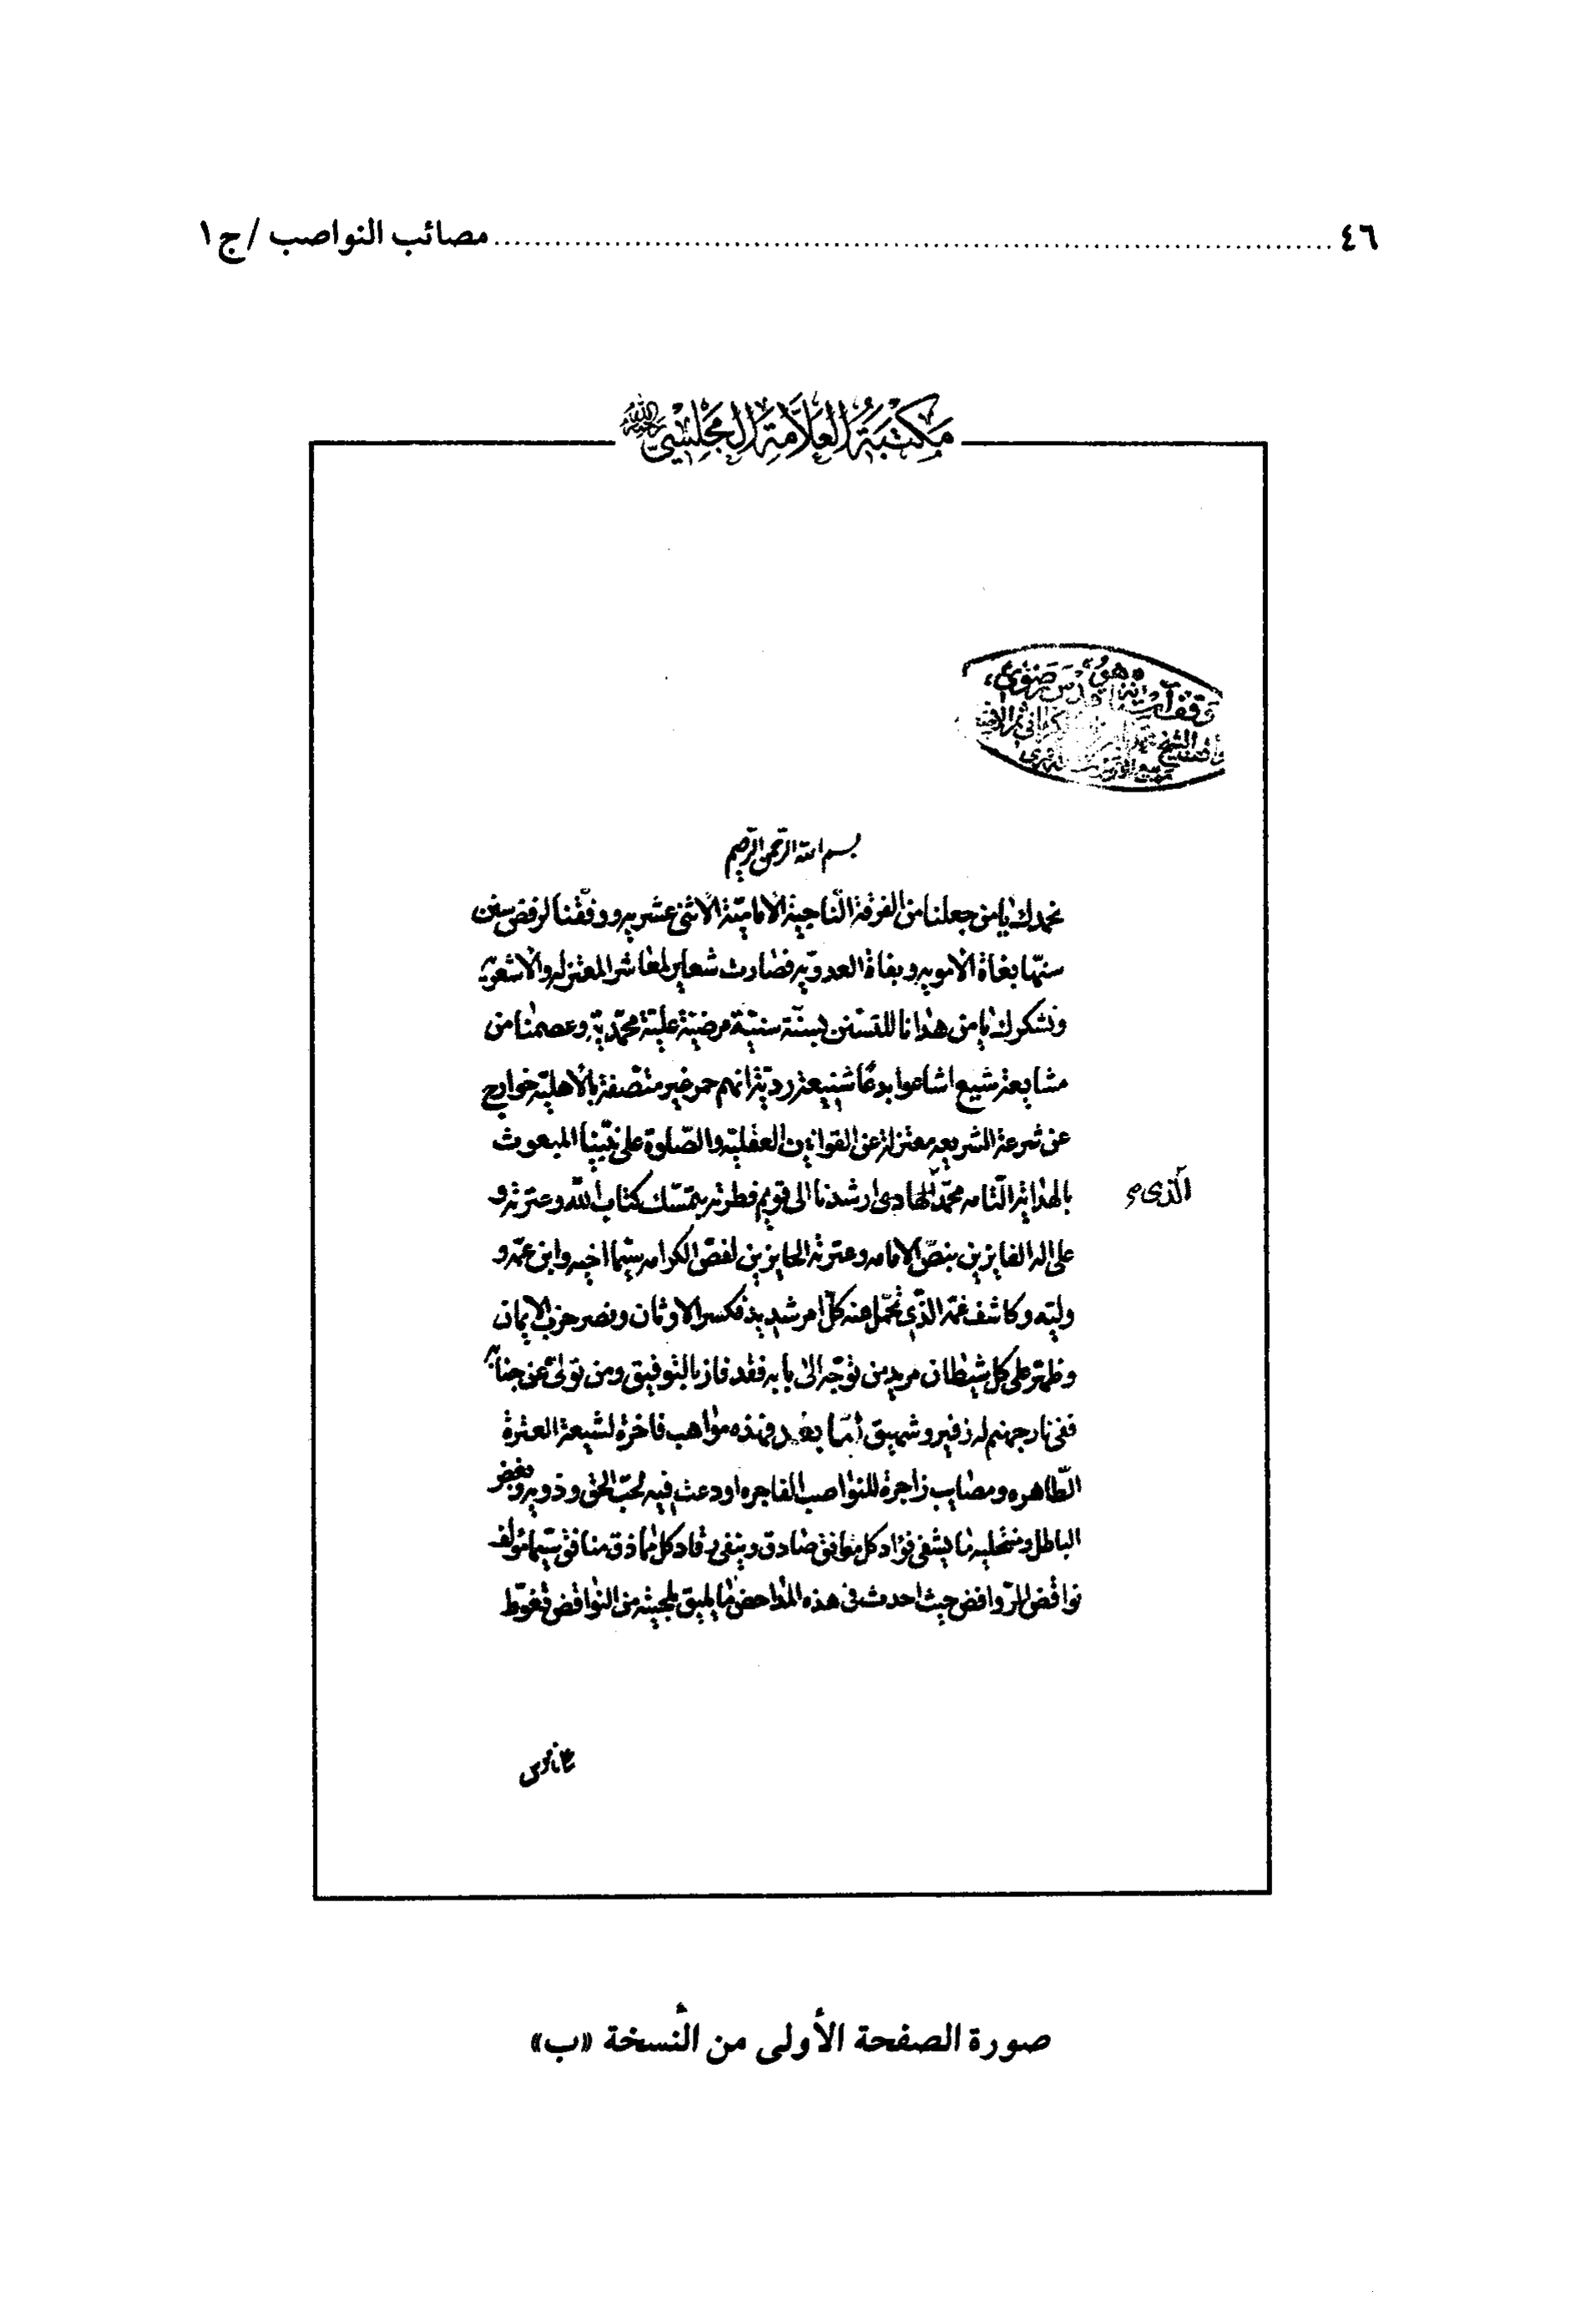 ٤٦ ........ مصائب النواصب / ج ١
مكتبة العلامة المجلسي
هو
وقف
بسم الله الرحمن الرحيم
نحمدك يا من جعلنا من الفرقة الناجية الامامية الاثنى عشريه ووفقنا لرفض سنن
سنها بغاة الامويه و بغاة العدويه فصارت شعاير لمعاشر المعتزله والاشعريه
ونشكرك يا من هدانا للتسنن بسنة سنية مرضية علية محمدية وعصمنا من
مشايعة شيع اشاعوا بدعا شنيعة ردية انهم حمر غير متصفة بالاهليه خوارج
عن شرعة الشريعه معتزلة عن القوانين العقليه والصلوة على نبينا المبعوث
بالهداية التامه محمد الهادى ارشدنا الى قويم فطرته بتمسك كتاب الله وعترته و
الذى
على اله الفايزين بنص الامامه وعترته الحايزين لفص الكرامه سيما اخيه وابن عمه و
وليه وكاشف غمه الذى تحمل عنه كل امر شديد فكسر الاوثان ونصر حزب الايمان
وظهر على كل شيطان مريد من توجه الى بابه فقد فاز بالتوفيق ومن تولى عن جنابه
ففى نار جهنم له زفير وشهيق اما بعد فهذه مواهب فاخرة لشيعة العترة
الطاهره ومصايب زاجرة للنواصب الفاجره اودعت فيه لحب الحق وذويه وبغض
الباطل ومنتحليه ما يشفى فؤاد كل موافق صادق وينفى رقاد كل مماذق منافق سيما مؤلف
نواقض الروافض حيث احدث فى هذه المداحض ما يليق بلحيته من النواقض فغوط
صورة الصفحة الأولى من النسخة «ب»